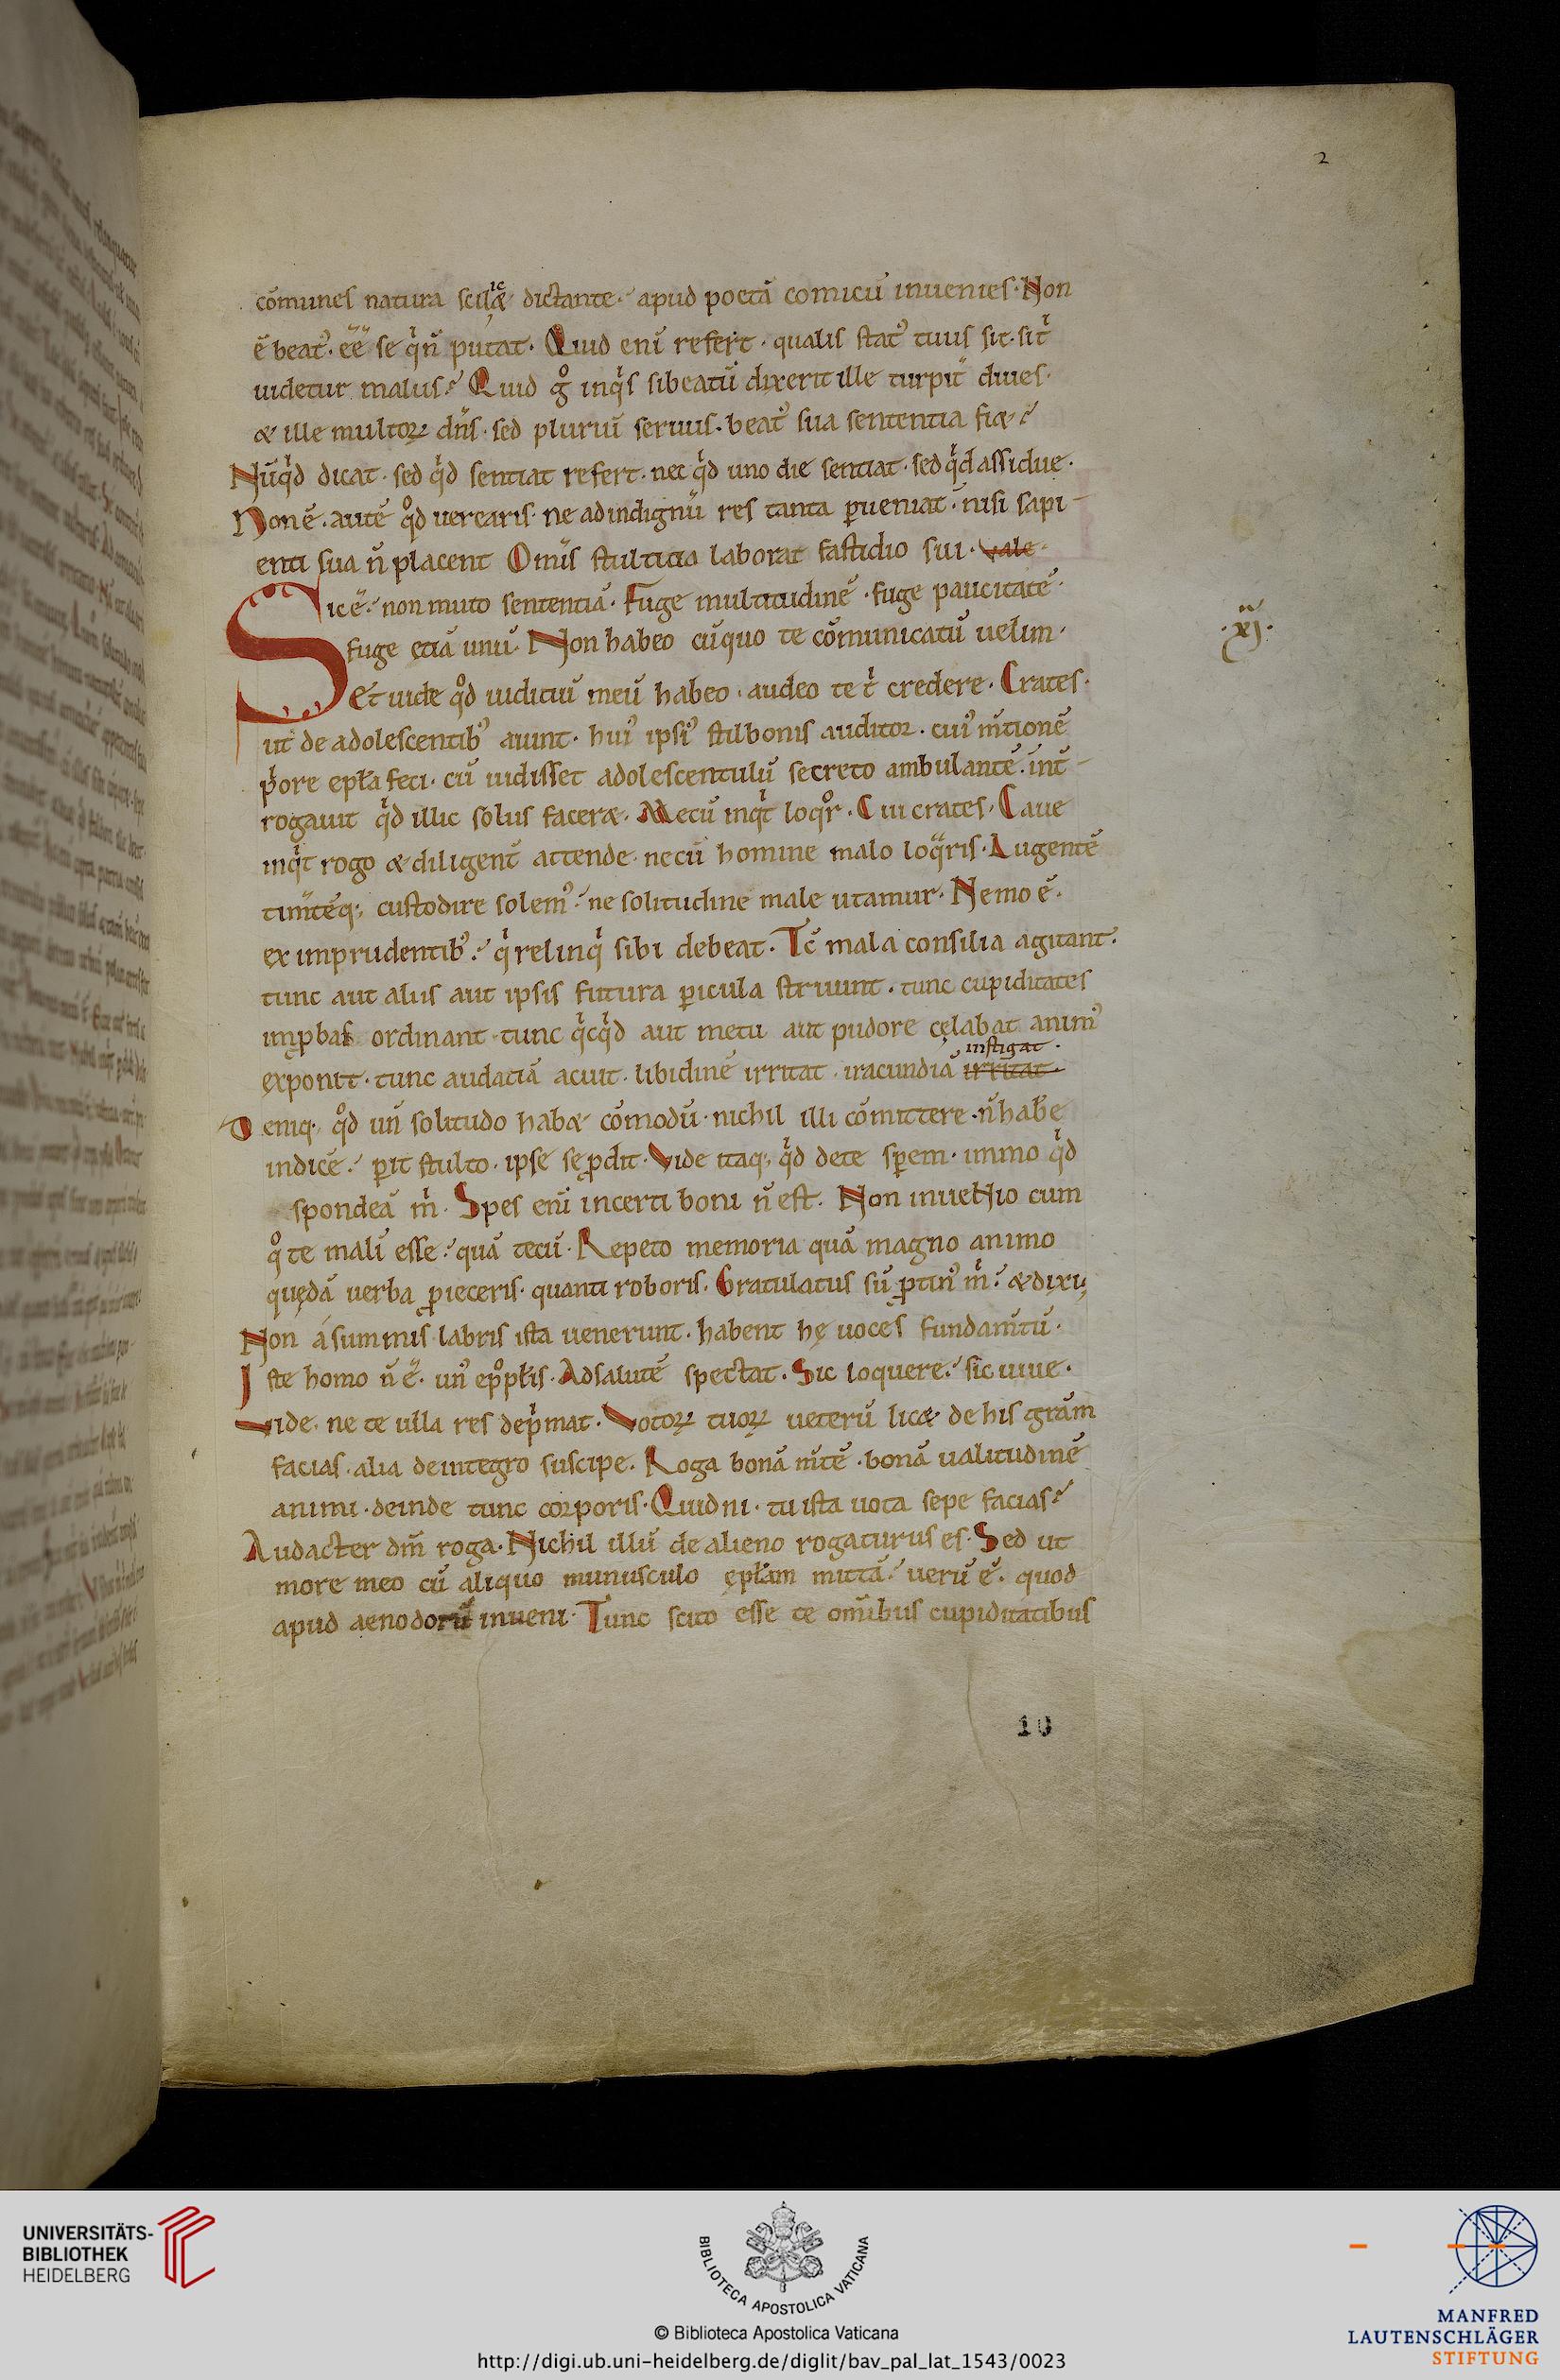 2
cōmunes natura scilicę dictante. apud poetā comicū inuenies. Non
ē beatꝰ. eē se qͥ n̄ putat. Quid eni refert. qualis statꝰ tuus sit. si tͥ
uidetur malus? Quid gͦ inqͥs si beatū dixerit ille turpit̄ diues.
& ille multoꝝ dn̄s. sed pluriū seruus. beatꝰ sua sententia fi&?
Nū qͥd dicat. sed qͥd sentiat refert. nec qͥd uno die sentiat. sed qͥd assidue.
Non ē. autē qͦd uerearis. ne ad indignū res tanta ꝑueniat. nisi sapi-
enti sua n̄ placent Omīs stulticia laborat fastidio sui. vale.
Sic ē. non muto sententiā. Fuge multitudinē. fuge paucitatē.
fuge etiā unū. Non habeo cū quo te cōmunicatū uelim.
Et uide qͦd iudiciū meū habeo. audeo te tͥ credere. Crates.
·xj·
ut de adolescentibꝰ aiunt. huiꝰ ipsiꝰ stilbonis auditor. cuiꝰ m̄tionē
pͥore epła feci. cū uidisset adolescentulū secreto ambulantē. int̄-
rogauit qͥd illic solus facer&. Mecū inqͥt loqͦr. Cui crates. Caue
inqͥt rogo & diligent̄ attende. ne cū homine malo loqͣris. Lugentē
tim̄tēq; custodire solemꝰ. ne solitudine male utamur. Nemo ē.
ex imprudentibꝰ. qͥ relinqͥ sibi debeat. Tc̄ mala consilia agitant.
tunc aut aliis aut ipsis futura ꝑicula struunt. tunc cupiditates
imꝓbas ordinant. tunc qͥcqͥd aut metu aut pudore cęlabat animꝰ
exponit. tunc audaciā acuit. libidinē irritat. iracundiā irritat.
instigat.
Deniq; qͦd un̄ solitudo hab& cōmodū. nichil illi cōmittere. n̄ habe
indicē. ꝑit stulto. ipse se ꝓdit. Vide itaq; qͥd de te sꝑem. immo qͥd
spondeā mͥ. Spes eni incerti boni n̄ est. Non inuenio cum
qͦ te malī esse. quā tecū. Repeto memoria quā magno animo
quędā uerba ꝓieceris. quanti roboris. Gratulatus sū ꝓtinꝰ mͥ. & dixi;
Non á summis labris ista uenerunt. habent hę uoces fundam̄tū.
Iste homo n̄ ē. un̄ epͦpłis. Ad salutē spectat. Sic loquere. sic uiue.
Vide. ne te ulla res depͥmat. Votoꝝ tuoꝝ ueterū lic& de his grām
facias. alia de integro suscipe. Roga bonā m̄tē. bonā ualitudinē
animi. deinde tunc corporis. Quid ni. tu ista uota sepe facias?
Audacter dm̄ roga. Nichil illū de alieno rogaturus es. Sed ut
more meo cū aliquo munusculo epłam mittā. uerū ē. quod
apud aenodorū inueni. Tunc scito esse te om̄ibus cupiditatibus
10
UNIVERSITÄTS-
BIBLIOTHEK
HEIDELBERG
BIBLIOTECA APOSTOLICA VATICANA
© Biblioteca Apostolica Vaticana
http://digi.ub.uni-heidelberg.de/diglit/bav_pal_lat_1543/0023
MANFRED
LAUTENSCHLÄGER
STIFTUNG